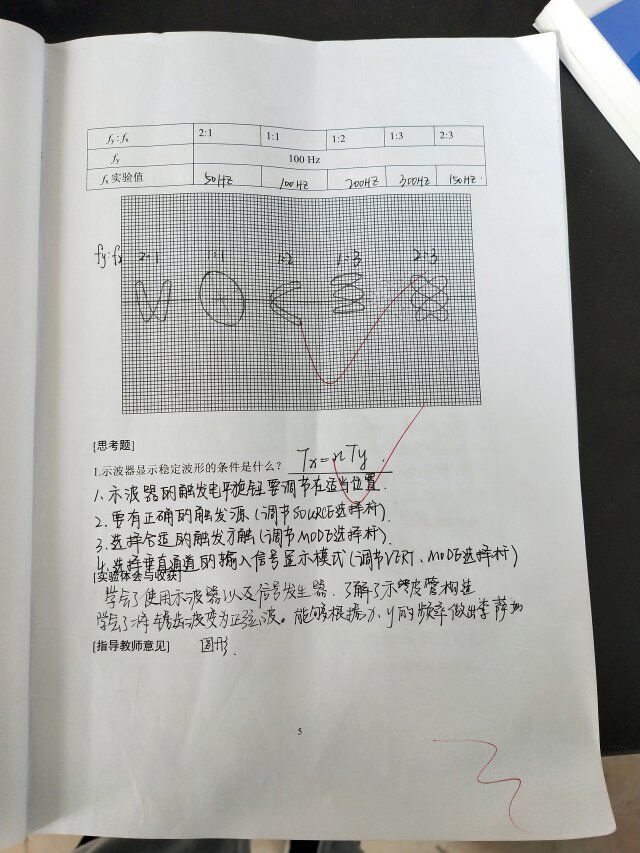 fy:fx 2:1 1:1 1:2 1:3 2:3
fy 100 Hz
fx实验值 50HZ 100HZ 200HZ 300HZ 150HZ
fy:fx 2:1 1:1 1:2 1:3 2:3
[思考题]
1.示波器显示稳定波形的条件是什么? Tx=nTy.
1、示波器的触发电平旋钮要调节在适当位置.
2.要有正确的触发源(调节SOURCE选择杆).
3.选择合适的触发方触(调节MODE选择杆).
4.选择垂直通道的输入信号显示模式(调节VERT、MODE选择杆)
[实验体会与收获]
学会了使用示波器以及信号发生器.了解了示皮管构造
学会了将锯齿波变为正弦波。能够根据x、y的频率做出李萨如
[指导教师意见] 图形.
5